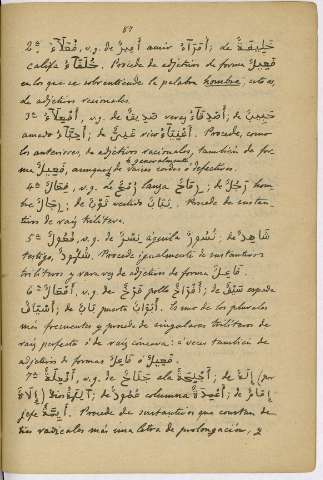 87
2ª فُعَلَآءُ, v.g. de أَمِيرٌ amir أُمَرَآءُ; de خَلِيفَةٌ
califa خُلَفَآءُ. Procede de adjetivos de forma فَعِيلٌ
en los que se sobrentiende la palabra hombre, esto es,
de adjetivos racionales.
3ª أَفْعِلَآءُ, v.g. de صَدِيقٌ veraz أَصْدِقَآءُ; de حَبِيبٌ
amado أَحِبَّآءُ; de غَنِيٌّ rico أَغْنِيَآءُ. Procede, como
los anteriores, de adjetivos racionales, tambien de for-
ma فَعِيلٌ, aunque generalmente de raices sordas ó defectivas.
4ª فِعَالٌ, v.g. de رُمْحٌ lanza رِمَاحٌ; de رَجُلٌ hom-
bre رِجَالٌ; de ثَوْبٌ vestido ثِيَابٌ. Procede de sustan-
tivos de raiz trilitera.
5ª فُعُولٌ, v.g. de نَسْرٌ águila نُسُورٌ; de شَاهِدٌ
testigo, شُهُودٌ. Procede igualmente de sustantivos
triliteros y rara vez de adjetivos de forma فَاعِلٌ.
6ª أَفْعَالٌ, v.g. de فَرْخٌ pollo أَفْرَاخٌ; de سَيْفٌ espada
أَسْيَافٌ; de بَابٌ puerta أَبْوَابٌ. Es uno de los plurales
más frecuentes y procede de singulares triliteros de
raiz perfecta ó de raiz cóncava: á veces tambien de
adjetivos de formas فَاعِلٌ ó فَعِيلٌ.
7ª أَفْعِلَةٌ, v.g. de جَنَاحٌ ala أَجْنِحَةٌ; de إِلَهٌ (por
إِلَاهٌ) Dios آلِهَةٌ; de عَمُودٌ columna أَعْمِدَةٌ; de إِمَامٌ
jefe أَئِمَّةٌ. Procede de sustantivos que constan de
tres radicales más una letra de prolongación, y